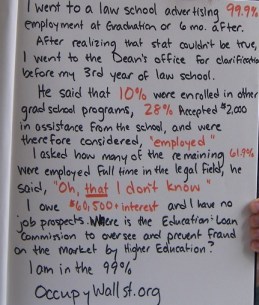 I went to a law school advertising 99.9%
employment at Graduation or 6 mo. after.
After realizing that stat couldn't be true,
I went to the Dean's office for clarification
before my 3rd year of law school.
He said that 10% were enrolled in other
grad school programs, 28% Accepted $2,000
in assistance from the school, and were
therefore considered, "employed"
I asked how many of the remaining 61.9%
were employed Full time in the legal field, he
said, "Oh, that I don't know"
I owe $60,500+ interest and I have no
job prospects. Where is the Education-Loan
Commission to oversee and prevent fraud
on the market by Higher Education?
I am in the 99%
OccupyWallSt.org